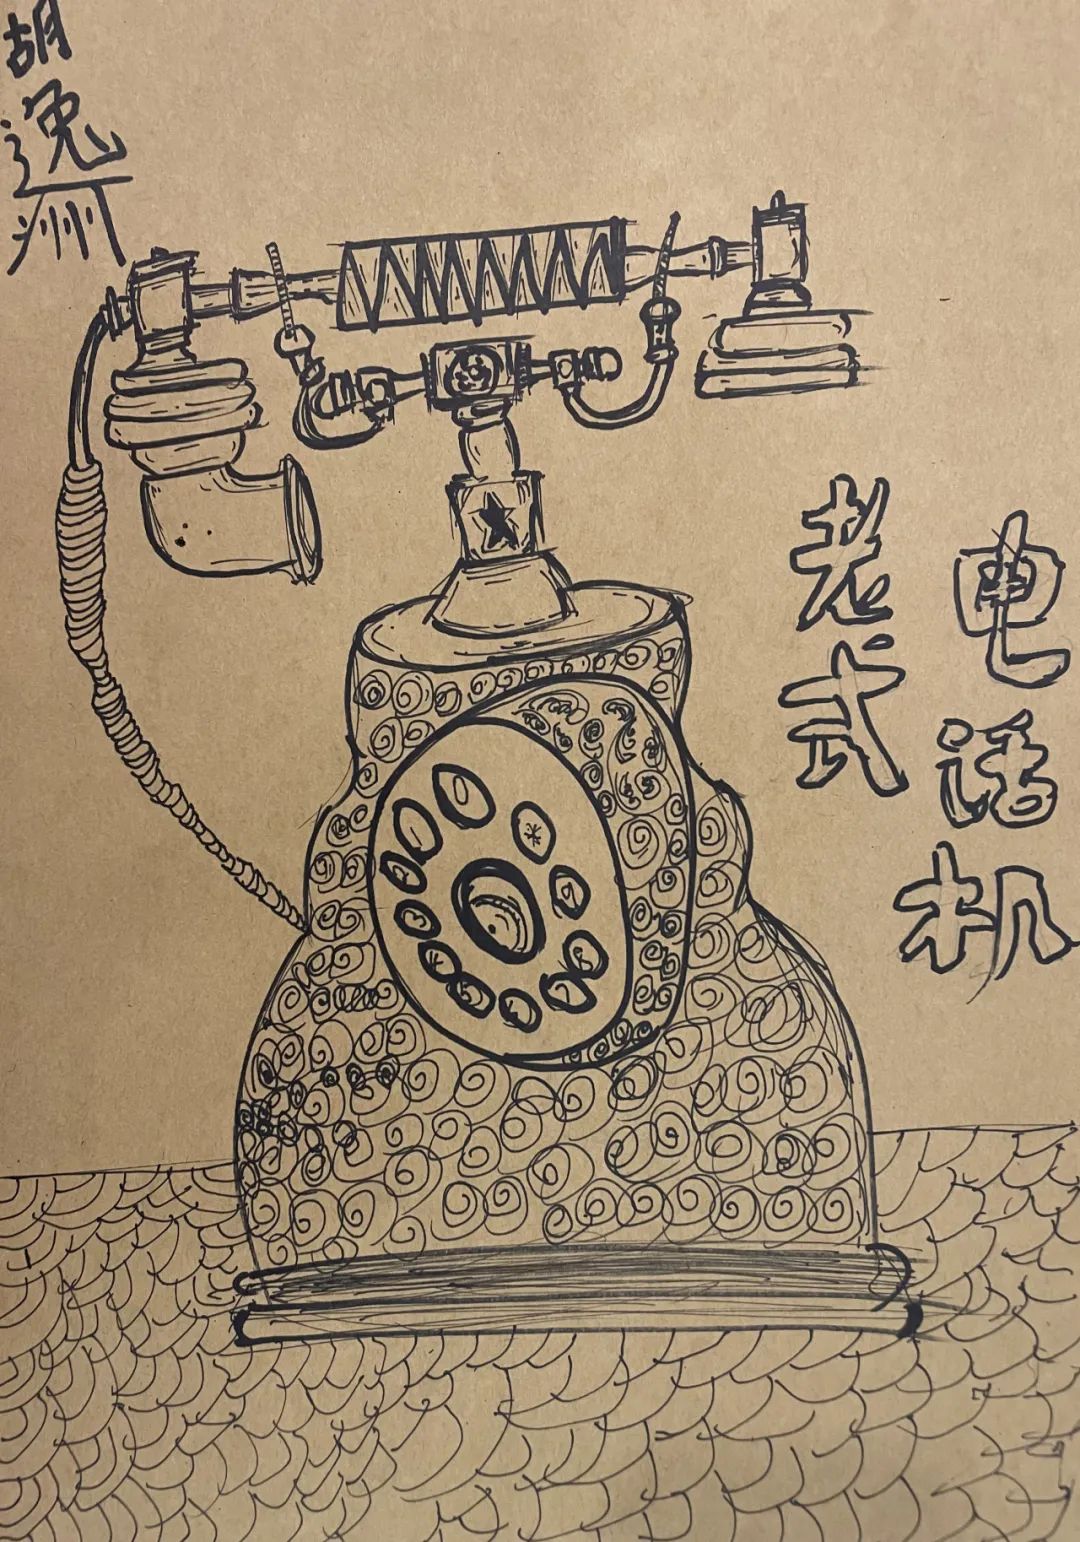 胡逸州
老式
电话机